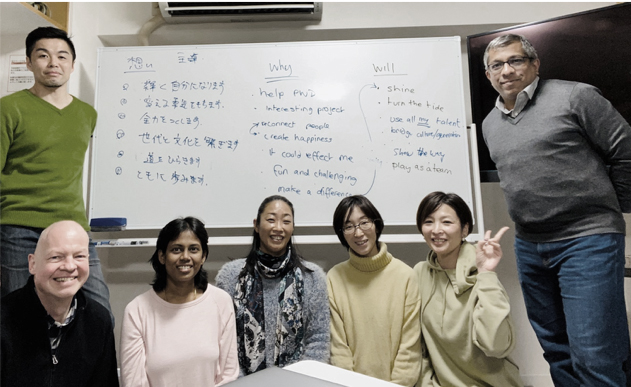 想い
Why
Will
輝く自分になります
全力をつくします
世代と文化を繋ぎます
道をひらきます
ともに歩みます
help Phil
interesting project
connect people
create happiness
it could effect me
fun and challenging
make a difference
shine
turn the tide
use all my talent
bridge culture/generation
show the way
play as a team